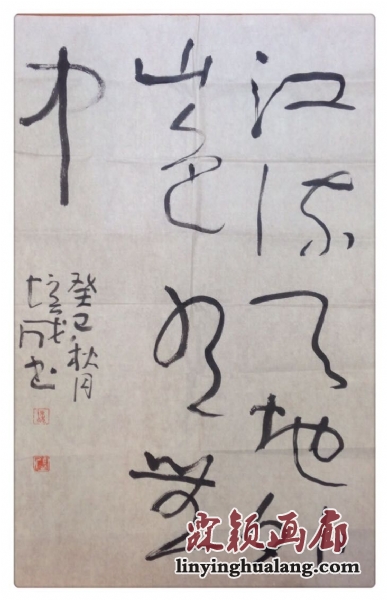 江流天地外
山色有無
中
癸巳秋月
培成书
霖颖画廊
linyinghualang.com